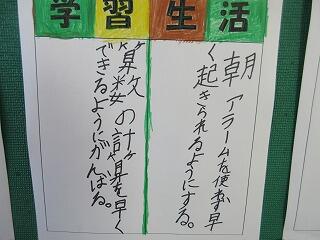 学習生活
朝アラームを使わず早
く起きられるようにする。
算数の計算を早く
できるようにがんばる。